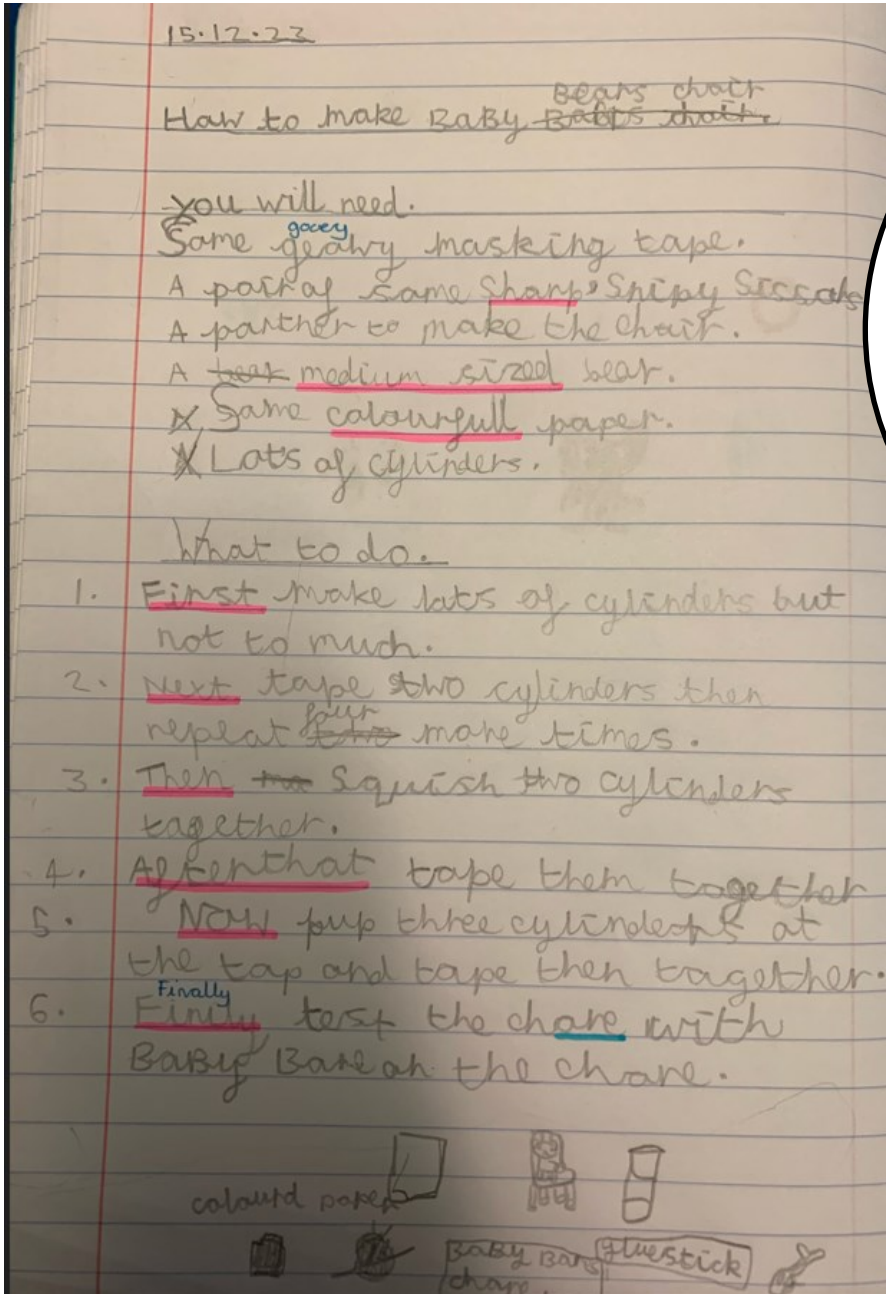 15.12.23
Bears chair
How to make BaBy Babs chair.
you will need.
govey
Some geawy masking tape.
A pair of some Sharp, Snipy Sissors
A partner to make the chair.
A bear medium sized bear.
Some colourfull paper.
Lots of cylinders.
What to do.
1. First make lots of cylinders but
not to much.
2. Next tape two cylinders then
four
repeat two more times.
3. Then Squish two cylinders
together.
4. After that tape them together
5. Now pup three cylinders at
the top and tape then together.
Finally
6. Finily test the chare with
BaBy Bare on the chare.
colourd paper
BaBy Bars gluestick
chare.